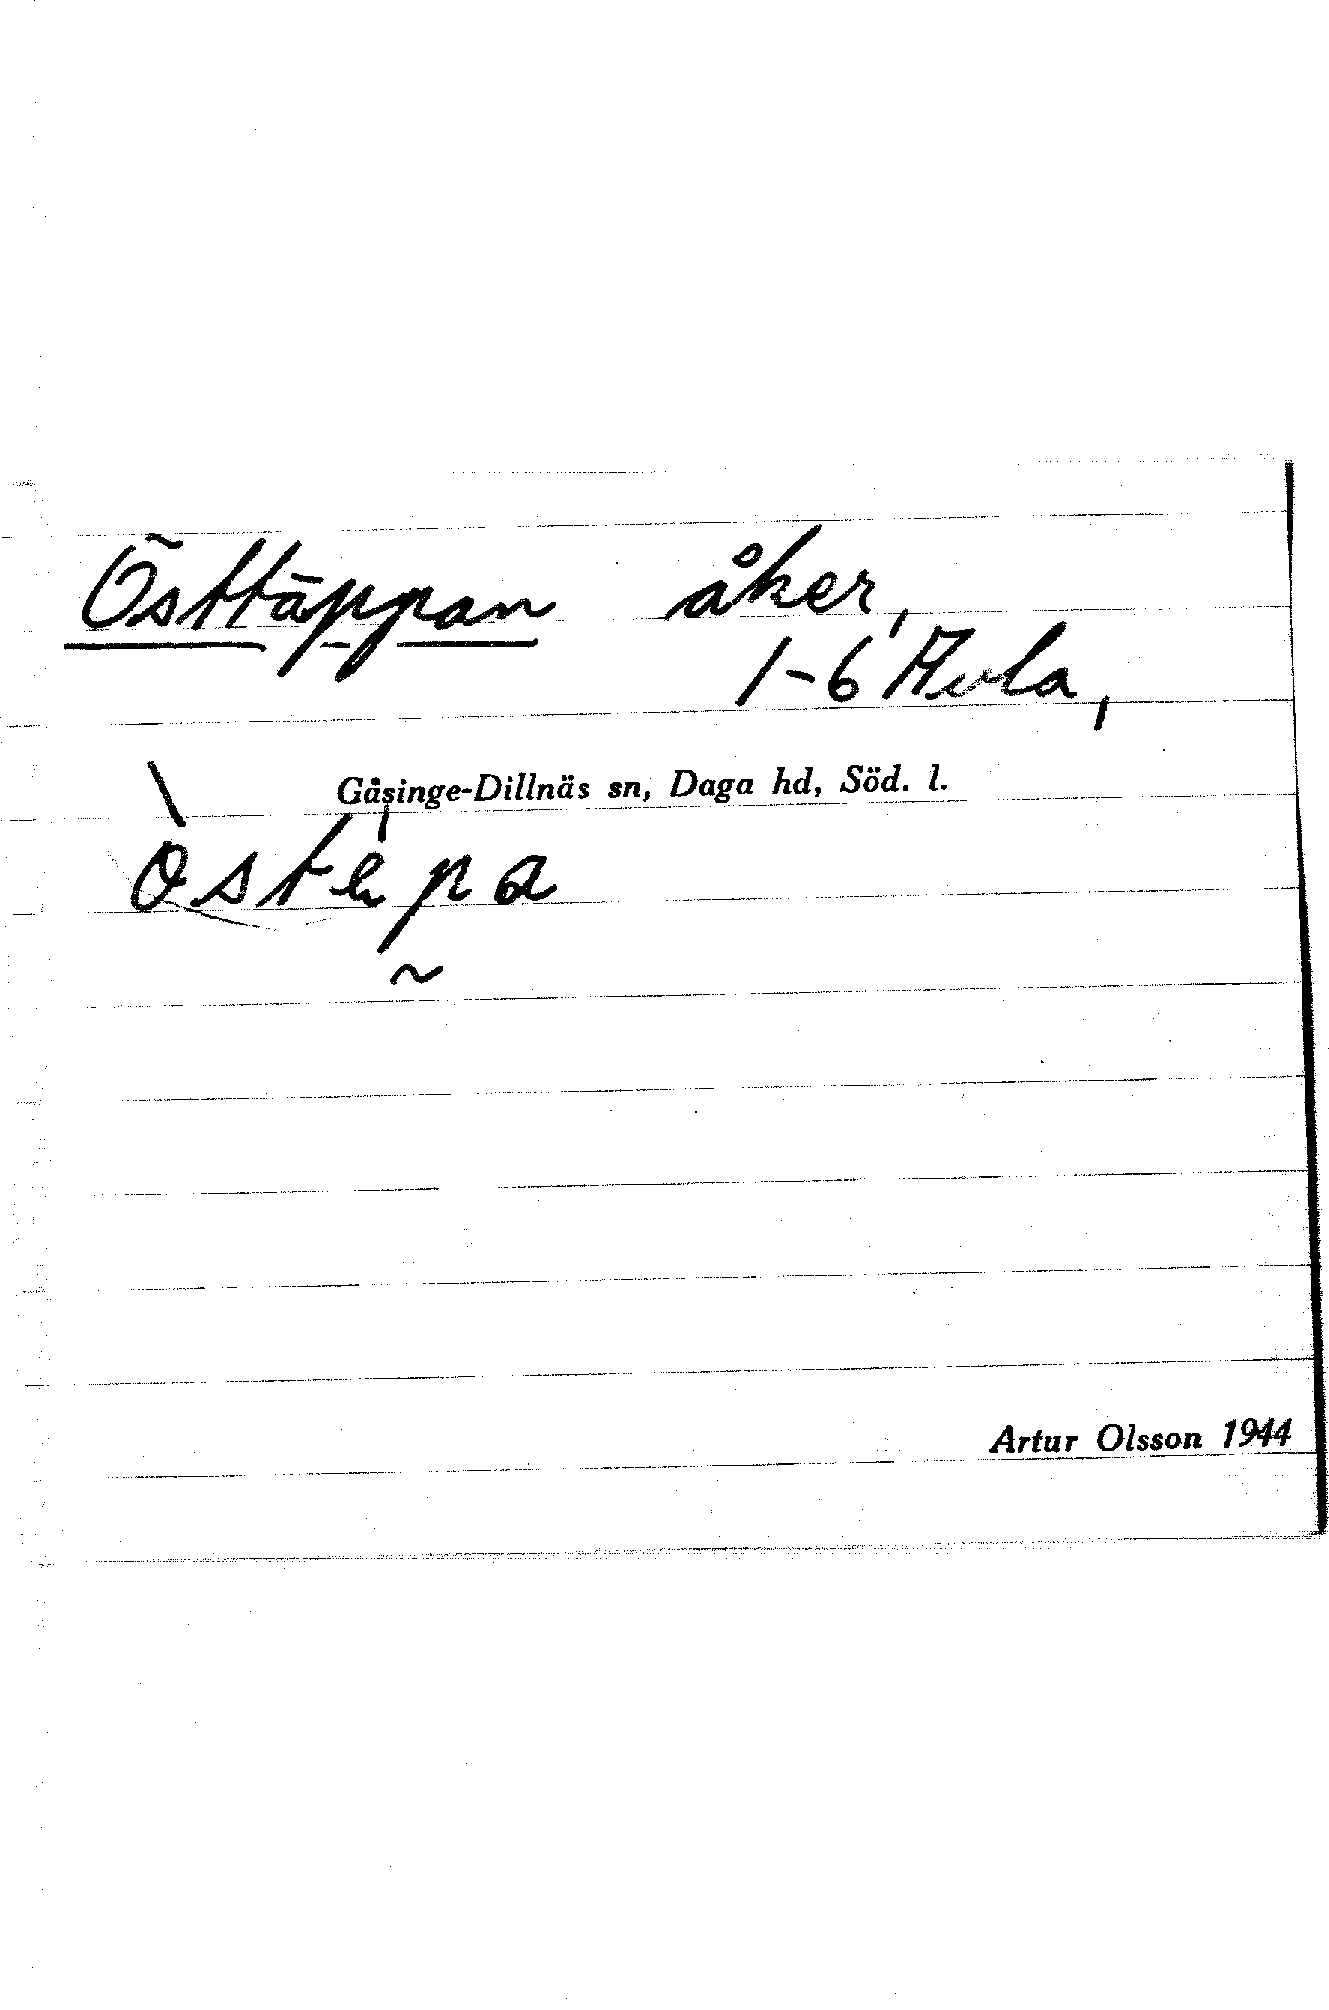 Östtäppan åker,
1-6 Avla,
Gåsinge-Dillnäs sn, Daga hd, Söd. l.
Artur Olsson 1944